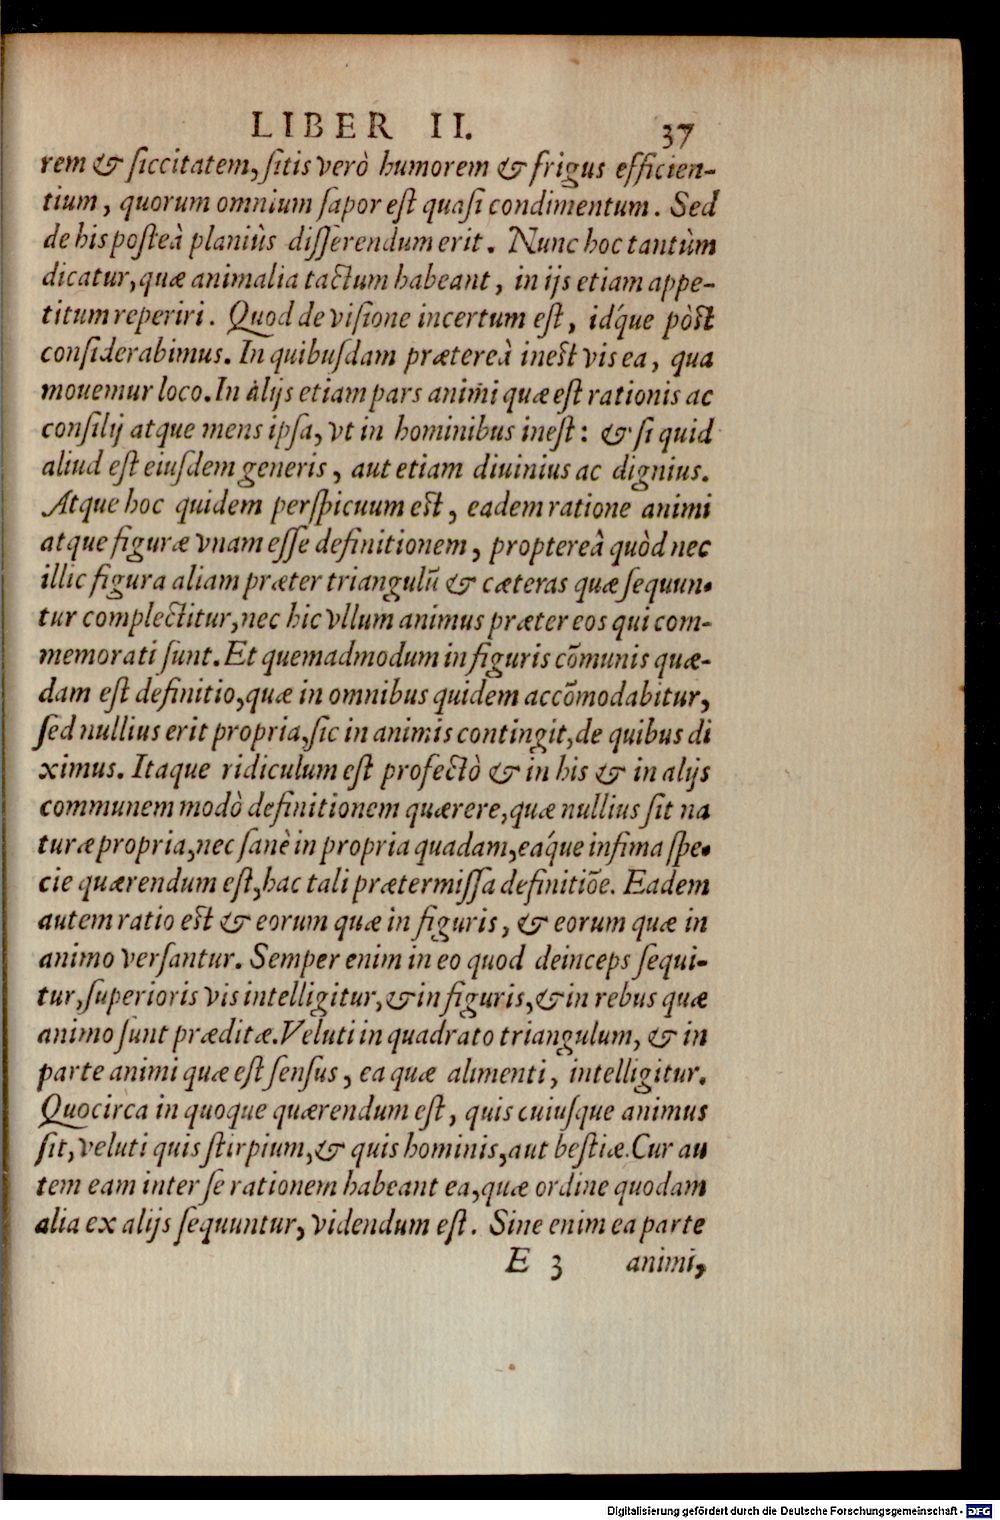 LIBER II. 37
rem & ſiccitatem, ſitis verò humorem & frigus efficien-
tium, quorum omnium ſapor eſt quaſi condimentum. Sed
de his poſteà planiùs diſſerendum erit. Nunc hoc tantùm
dicatur, quæ animalia tactum habeant, in ijs etiam appe-
titum reperiri. Quod de viſione incertum eſt, id́que pòst
conſiderabimus. In quibuſdam prætereà inest vis ea, qua
mouemur loco. In alijs etiam pars animi quæ eſt rationis ac
conſilij atque mens ipſa, vt in hominibus ineſt: & ſi quid
aliud eſt eiuſdem generis, aut etiam diuinius ac dignius.
Atque hoc quidem perſpicuum est, eadem ratione animi
atque figuræ vnam eſſe definitionem, proptereâ quòd nec
illic figura aliam præter triangulū & cæteras quæ ſequun-
tur complectitur, nec hic vllum animus præter eos qui com-
memorati ſunt. Et quemadmodum in figuris cōmunis quæ-
dam eſt definitio, quæ in omnibus quidem accōmodabitur,
ſed nullius erit propria, ſic in animis contingit, de quibus di
ximus. Itaque ridiculum eſt profectò & in his & in alijs
communem modò definitionem quærere, quæ nullius ſit na
turæ propria, nec ſanè in propria quadam, eáque infima ſpe-
cie quærendum eſt, hac tali prætermiſſa definitiōe. Eadem
autem ratio est & eorum quæ in figuris, & eorum quæ in
animo verſantur. Semper enim in eo quod deinceps ſequi-
tur, ſuperioris vis intelligitur, & in figuris, & in rebus quæ
animo ſunt præditæ. Veluti in quadrato triangulum, & in
parte animi quæ eſt ſenſus, ea quæ alimenti, intelligitur.
Quocirca in quoque quærendum eſt, quis cuiuſque animus
ſit, veluti quis ſtirpium, & quis hominis, aut beſtiæ. Cur au
tem eam inter ſe rationem habeant ea, quæ ordine quodam
alia ex alijs ſequuntur, videndum eſt. Sine enim ea parte
E 3 animi,
Digitalisierung gefördert durch die Deutsche Forschungsgemeinschaft - DFG